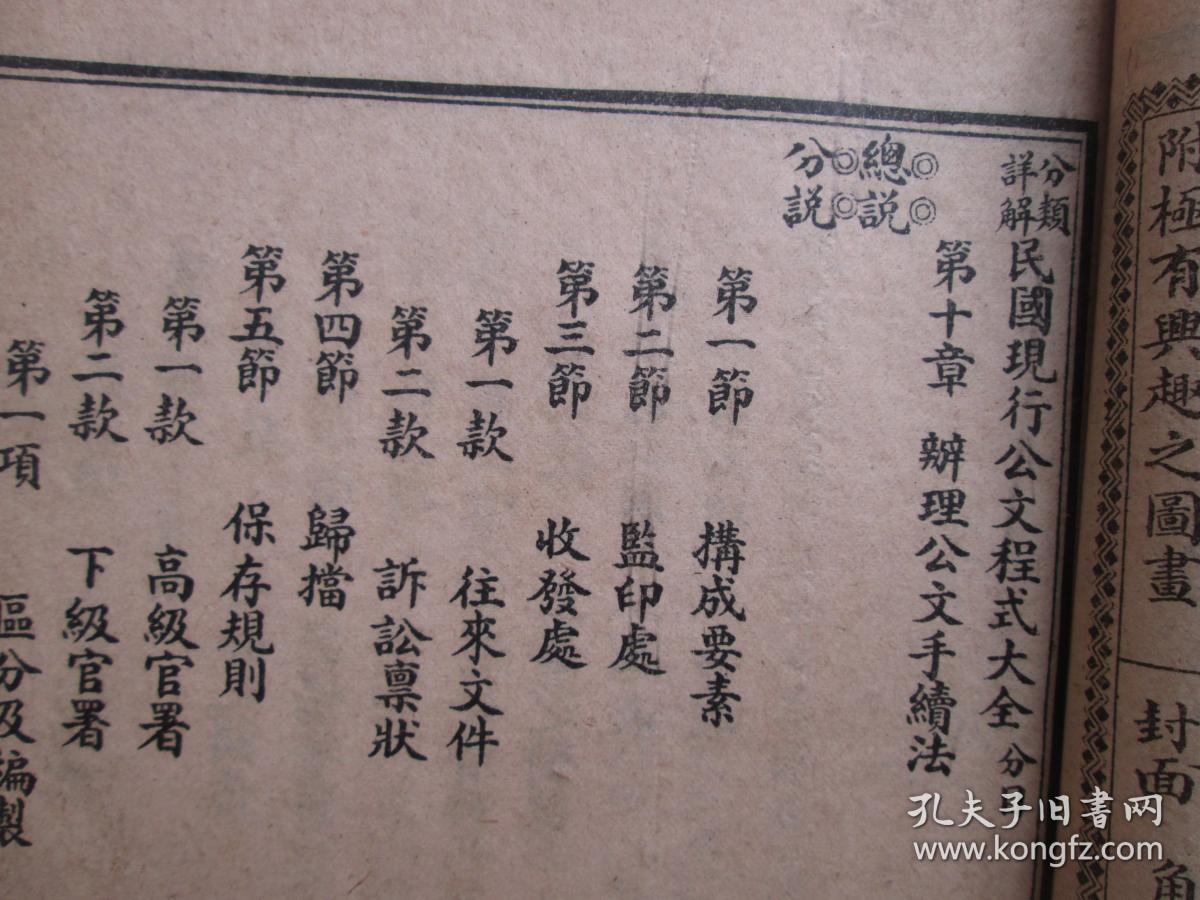 附極有興趣之圖畫 封面 角
分類詳解民國現行公文程式大全 分目
第十章 辦理公文手續法
◎總◎說
◎分◎說
第一節 搆成要素
第二節 監印處
第三節 收發處
第一款 往來文件
第二款 訴訟禀狀
第四節 歸擋
第五節 保存規則
第一款 高級官署
第二款 下級官署
第一項 區分及編製
孔夫子旧书网
www.kongfz.com